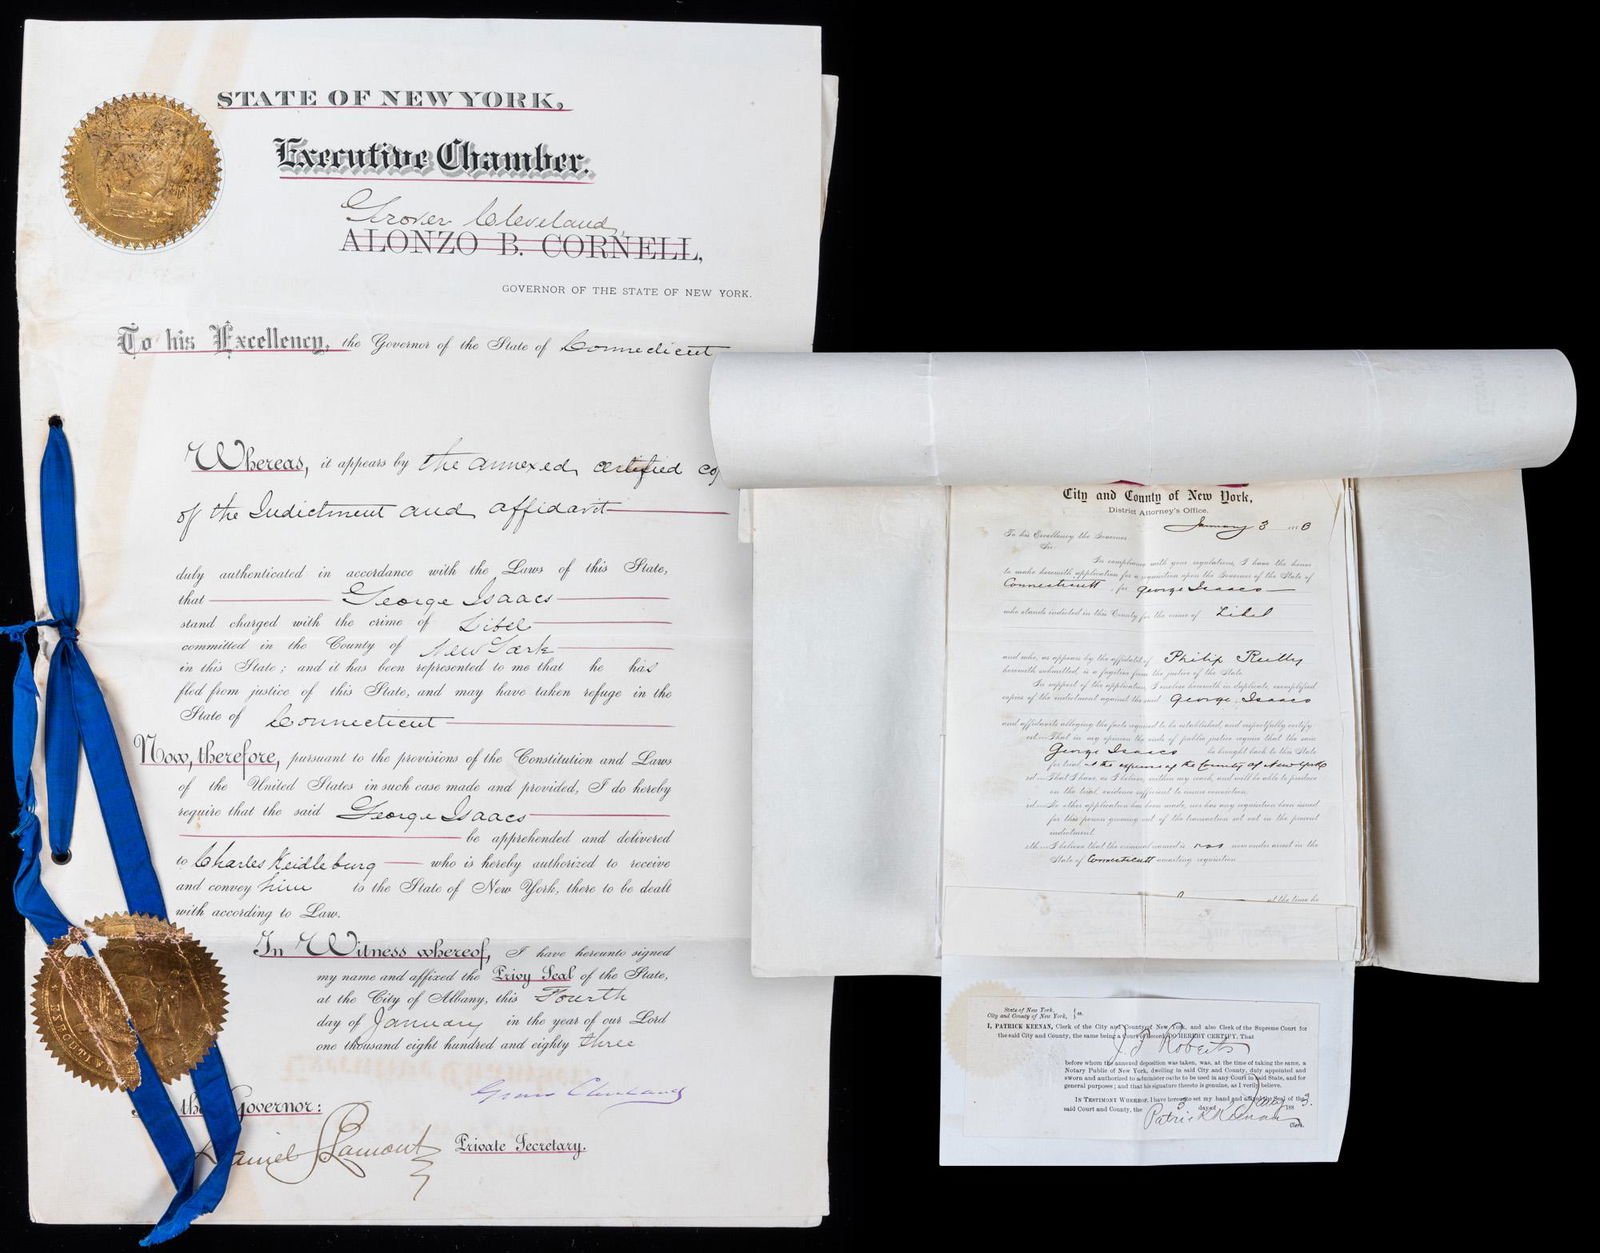 STATE OF NEW YORK,
Executive Chamber.
Grover Cleveland,
ALONZO B. CORNELL,
GOVERNOR OF THE STATE OF NEW YORK.
To his Excellency, the Governor of the State of Connecticut
Whereas, it appears by the annexed certified
of the Indictment and affidavit
duly authenticated in accordance with the Laws of this State,
that George Isaacs
stand charged with the crime of Libel
committed in the County of New York
in this State; and it has been represented to me that he has
fled from justice of this State, and may have taken refuge in the
State of Connecticut
Now, therefore, pursuant to the provisions of the Constitution and Laws
of the United States in such case made and provided, I do hereby
require that the said George Isaacs
be apprehended and delivered
to Charles Heidleburg who is hereby authorized to receive
and convey him to the State of New York, there to be dealt
with according to Law.
In Witness whereof, I have hereunto signed
my name and affixed the Privy Seal of the State,
at the City of Albany, this Fourth
day of January in the year of our Lord
one thousand eight hundred and eighty three
Grover Cleveland
the Governor:
Daniel S Lamont Private Secretary.
City and County of New York,
District Attorney's Office.
January 3
To his Excellency the Governor
Sir:
In compliance with your regulations, I have the honor
to make herewith application for a requisition upon the Governor of the State of
Connecticutt for George Isaacs
who stands indicted in this County for the crime of Libel
and who, as appears by the affidavit of Philip Reilly
herewith submitted, is a fugitive from the justice of the State.
In support of the application, I enclose herewith in duplicate, exemplified
copies of the indictment against the said George Isaacs
and affidavits alleging the facts required to be established, and respectfully certify
That in my opinion the ends of public justice require that the said
George Isaacs be brought back to this State
for trial at the expense of the County of New York
That I have, as I believe, within my reach, and will be able to produce
on the trial, evidence sufficient to ensure conviction.
No other application has been made, nor has any requisition been issued
for this person growing out of the transaction set out in the present
indictment.
I believe that the criminal named is now under arrest in the
State of Connecticutt awaiting requisition
at the time he
State of New York,
City and County of New York, } ss
I, PATRICK KEENAN, Clerk of the City and County of New York, and also Clerk of the Supreme Court for
the said City and County, the same being a Court of Record, DO HEREBY CERTIFY, That
J F Roberts
before whom the annexed deposition was taken, was, at the time of taking the same, a
Notary Public of New York, dwelling in said City and County, duly appointed and
sworn and authorized to administer oaths to be used in any Court in said State, and for
general purposes; and that his signature thereto is genuine, as I verily believe.
IN TESTIMONY WHEREOF, I have hereunto set my hand and affixed the Seal of the
said Court and County, the 3 day of Jany 1883.
Patrick Keenan
Clerk.